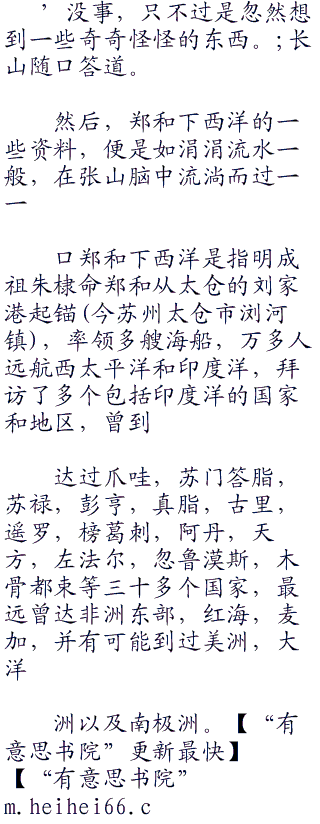 ’没事，只不过是忽然想
到一些奇奇怪怪的东西。；长
山随口答道。
然后，郑和下西洋的一
些资料，便是如涓涓流水一
般，在张山脑中流淌而过一
一
口郑和下西洋是指明成
祖朱棣命郑和从太仓的刘家
港起锚(今苏州太仓市浏河
镇)，率领多艘海船，万多人
远航西太平洋和印度洋，拜
访了多个包括印度洋的国家
和地区，曾到
达过爪哇，苏门答脂，
苏禄，彭亨，真脂，古里，
遥罗，榜葛刺，阿丹，天
方，左法尔，忽鲁漠斯，木
骨都束等三十多个国家，最
远曾达非洲东部，红海，麦
加，并有可能到过美洲，大
洋
洲以及南极洲。【“有
意思书院”更新最快】
【“有意思书院”
m.heihei66.c